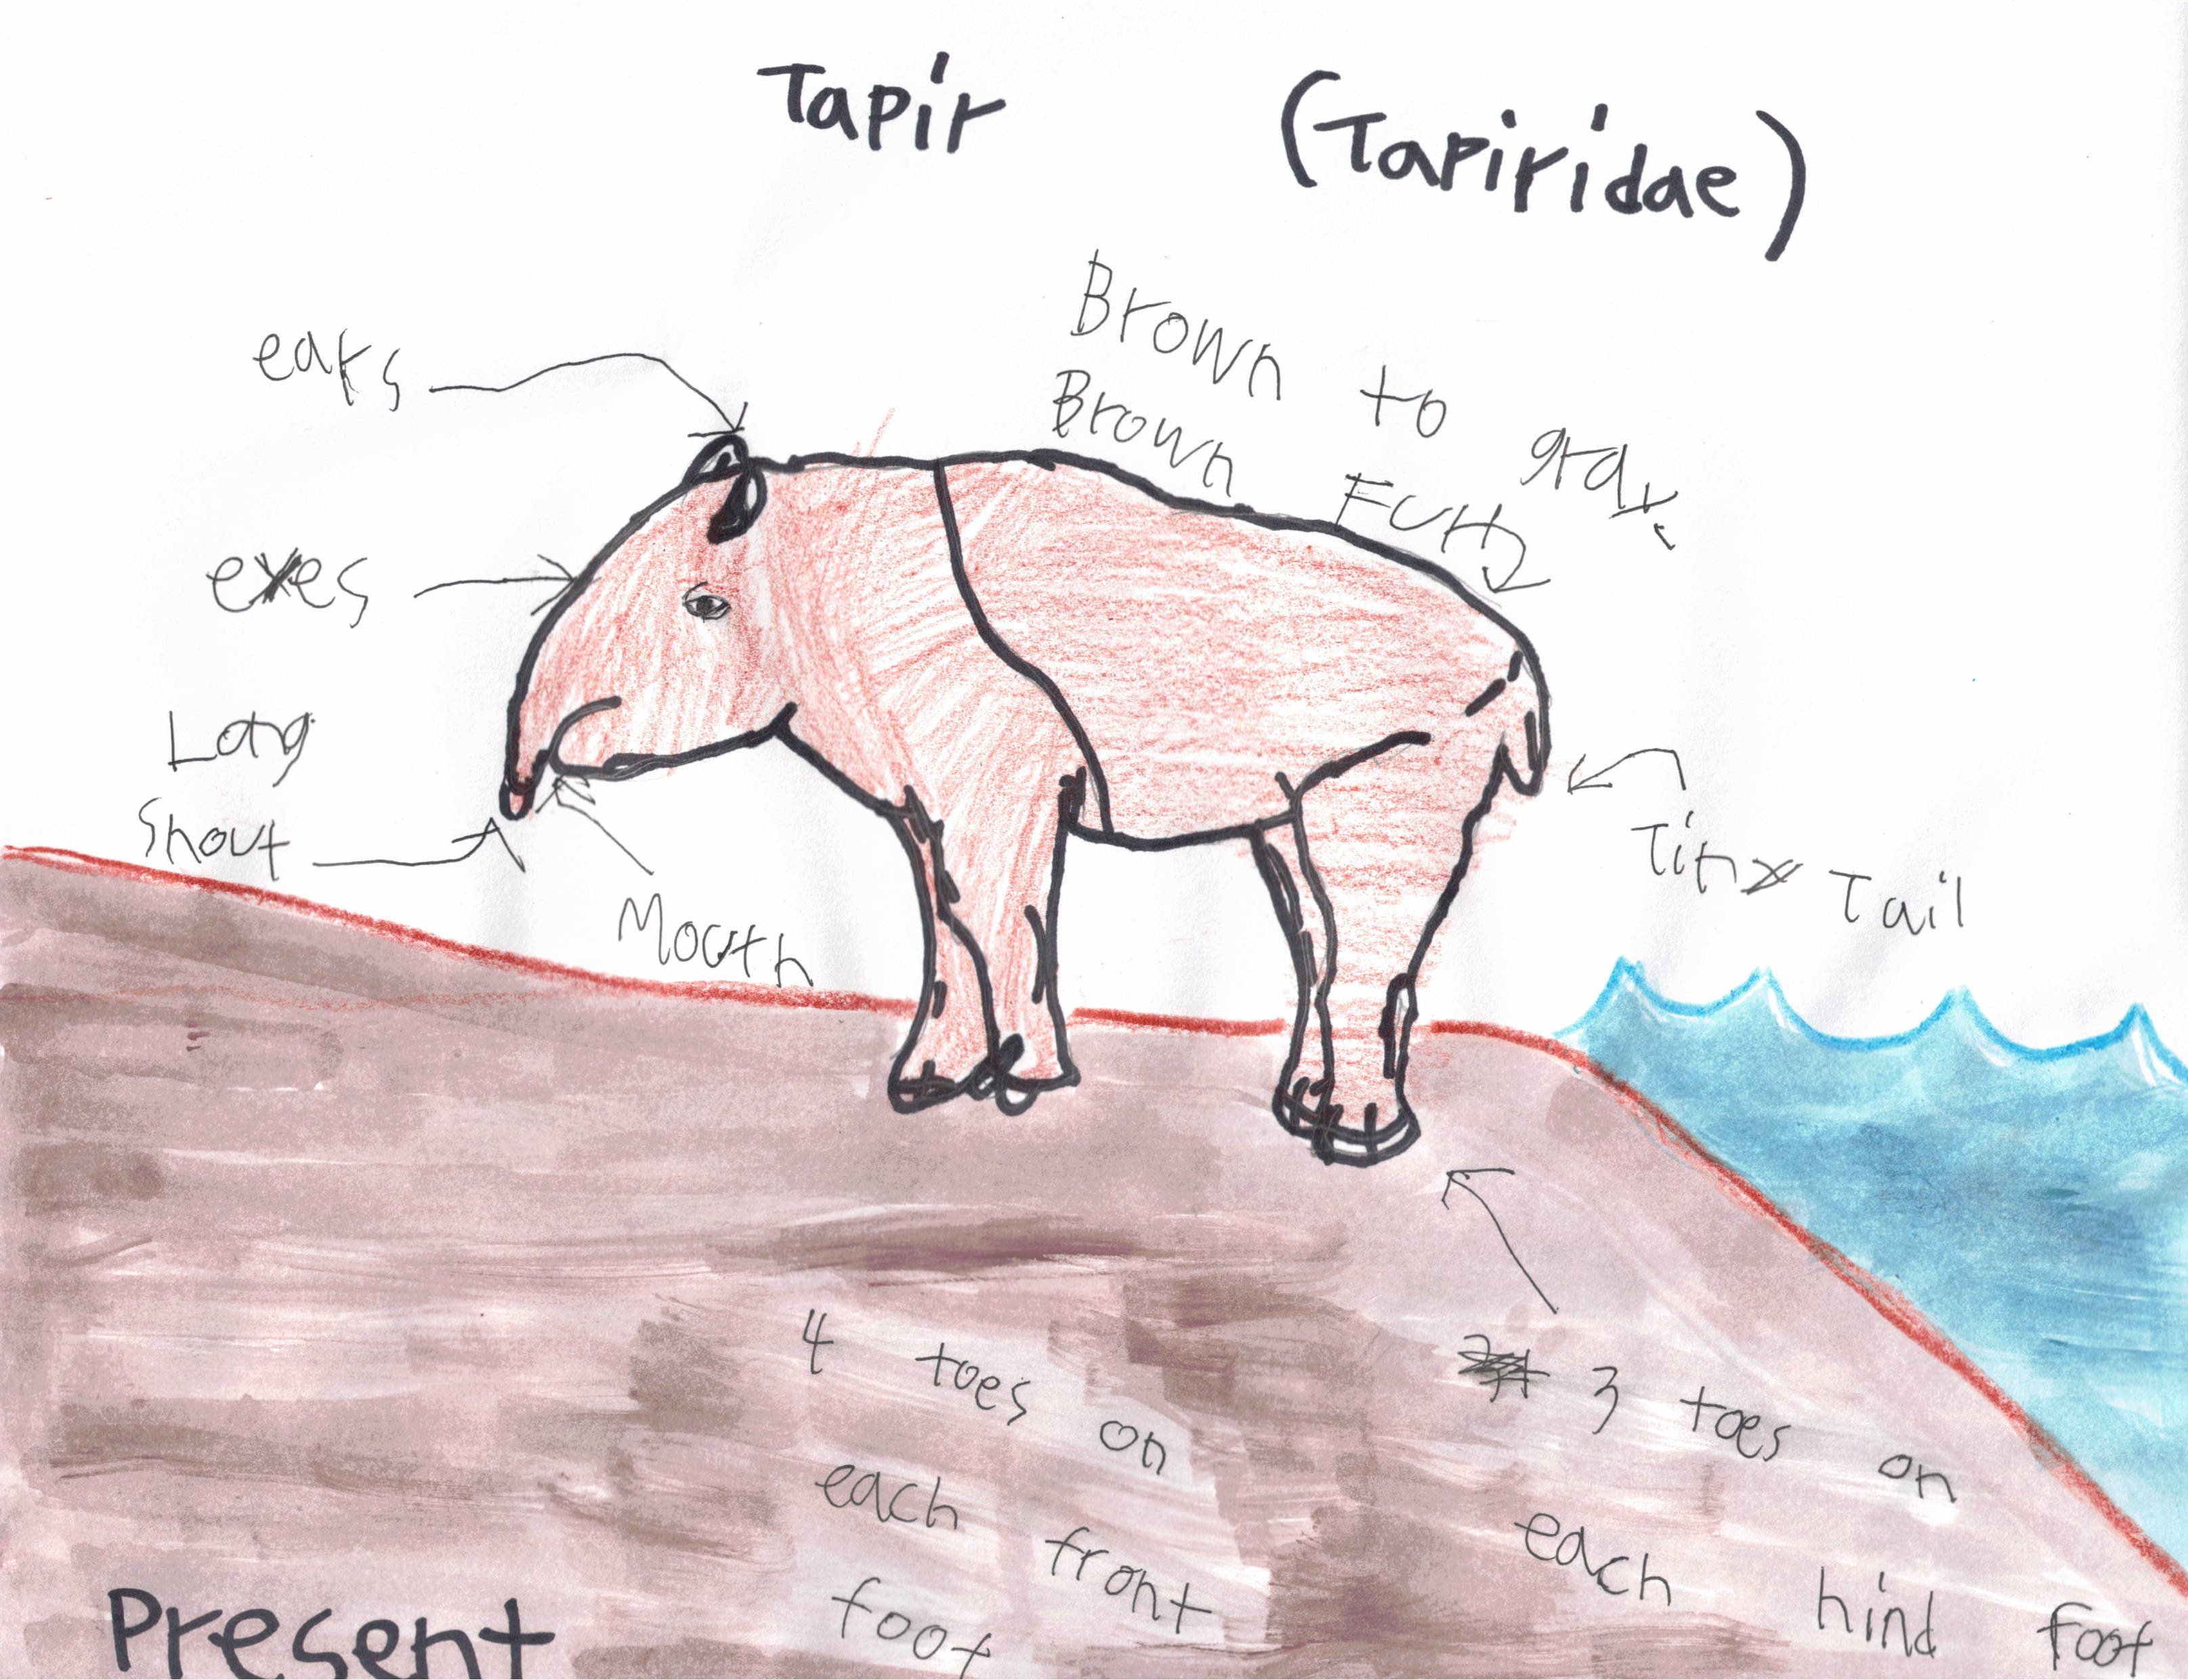 Tapir (Tapiridae)
Brown to gray
Brown Fur
ears
eyes
Long
Snout
Mouth
Tiny Tail
4 toes on
each front
foot
3 toes on
each hind foot
Present